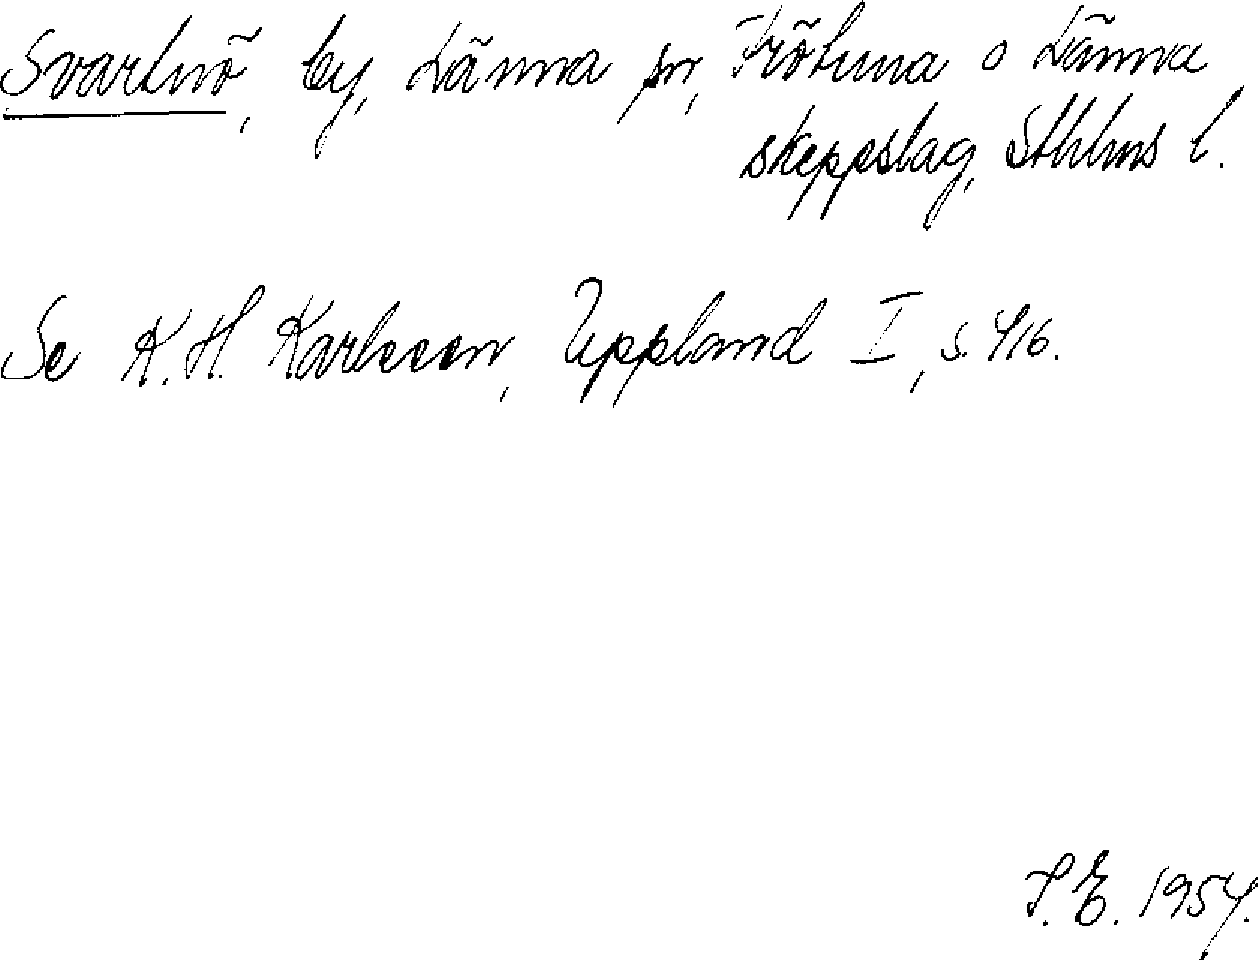 Svartnö, by, Länna sn, Frötuna o Länna
skeppslag, Sthlms l.
Se K.H. Karlsson, Uppland I, s. 416.
S.E. 1954.